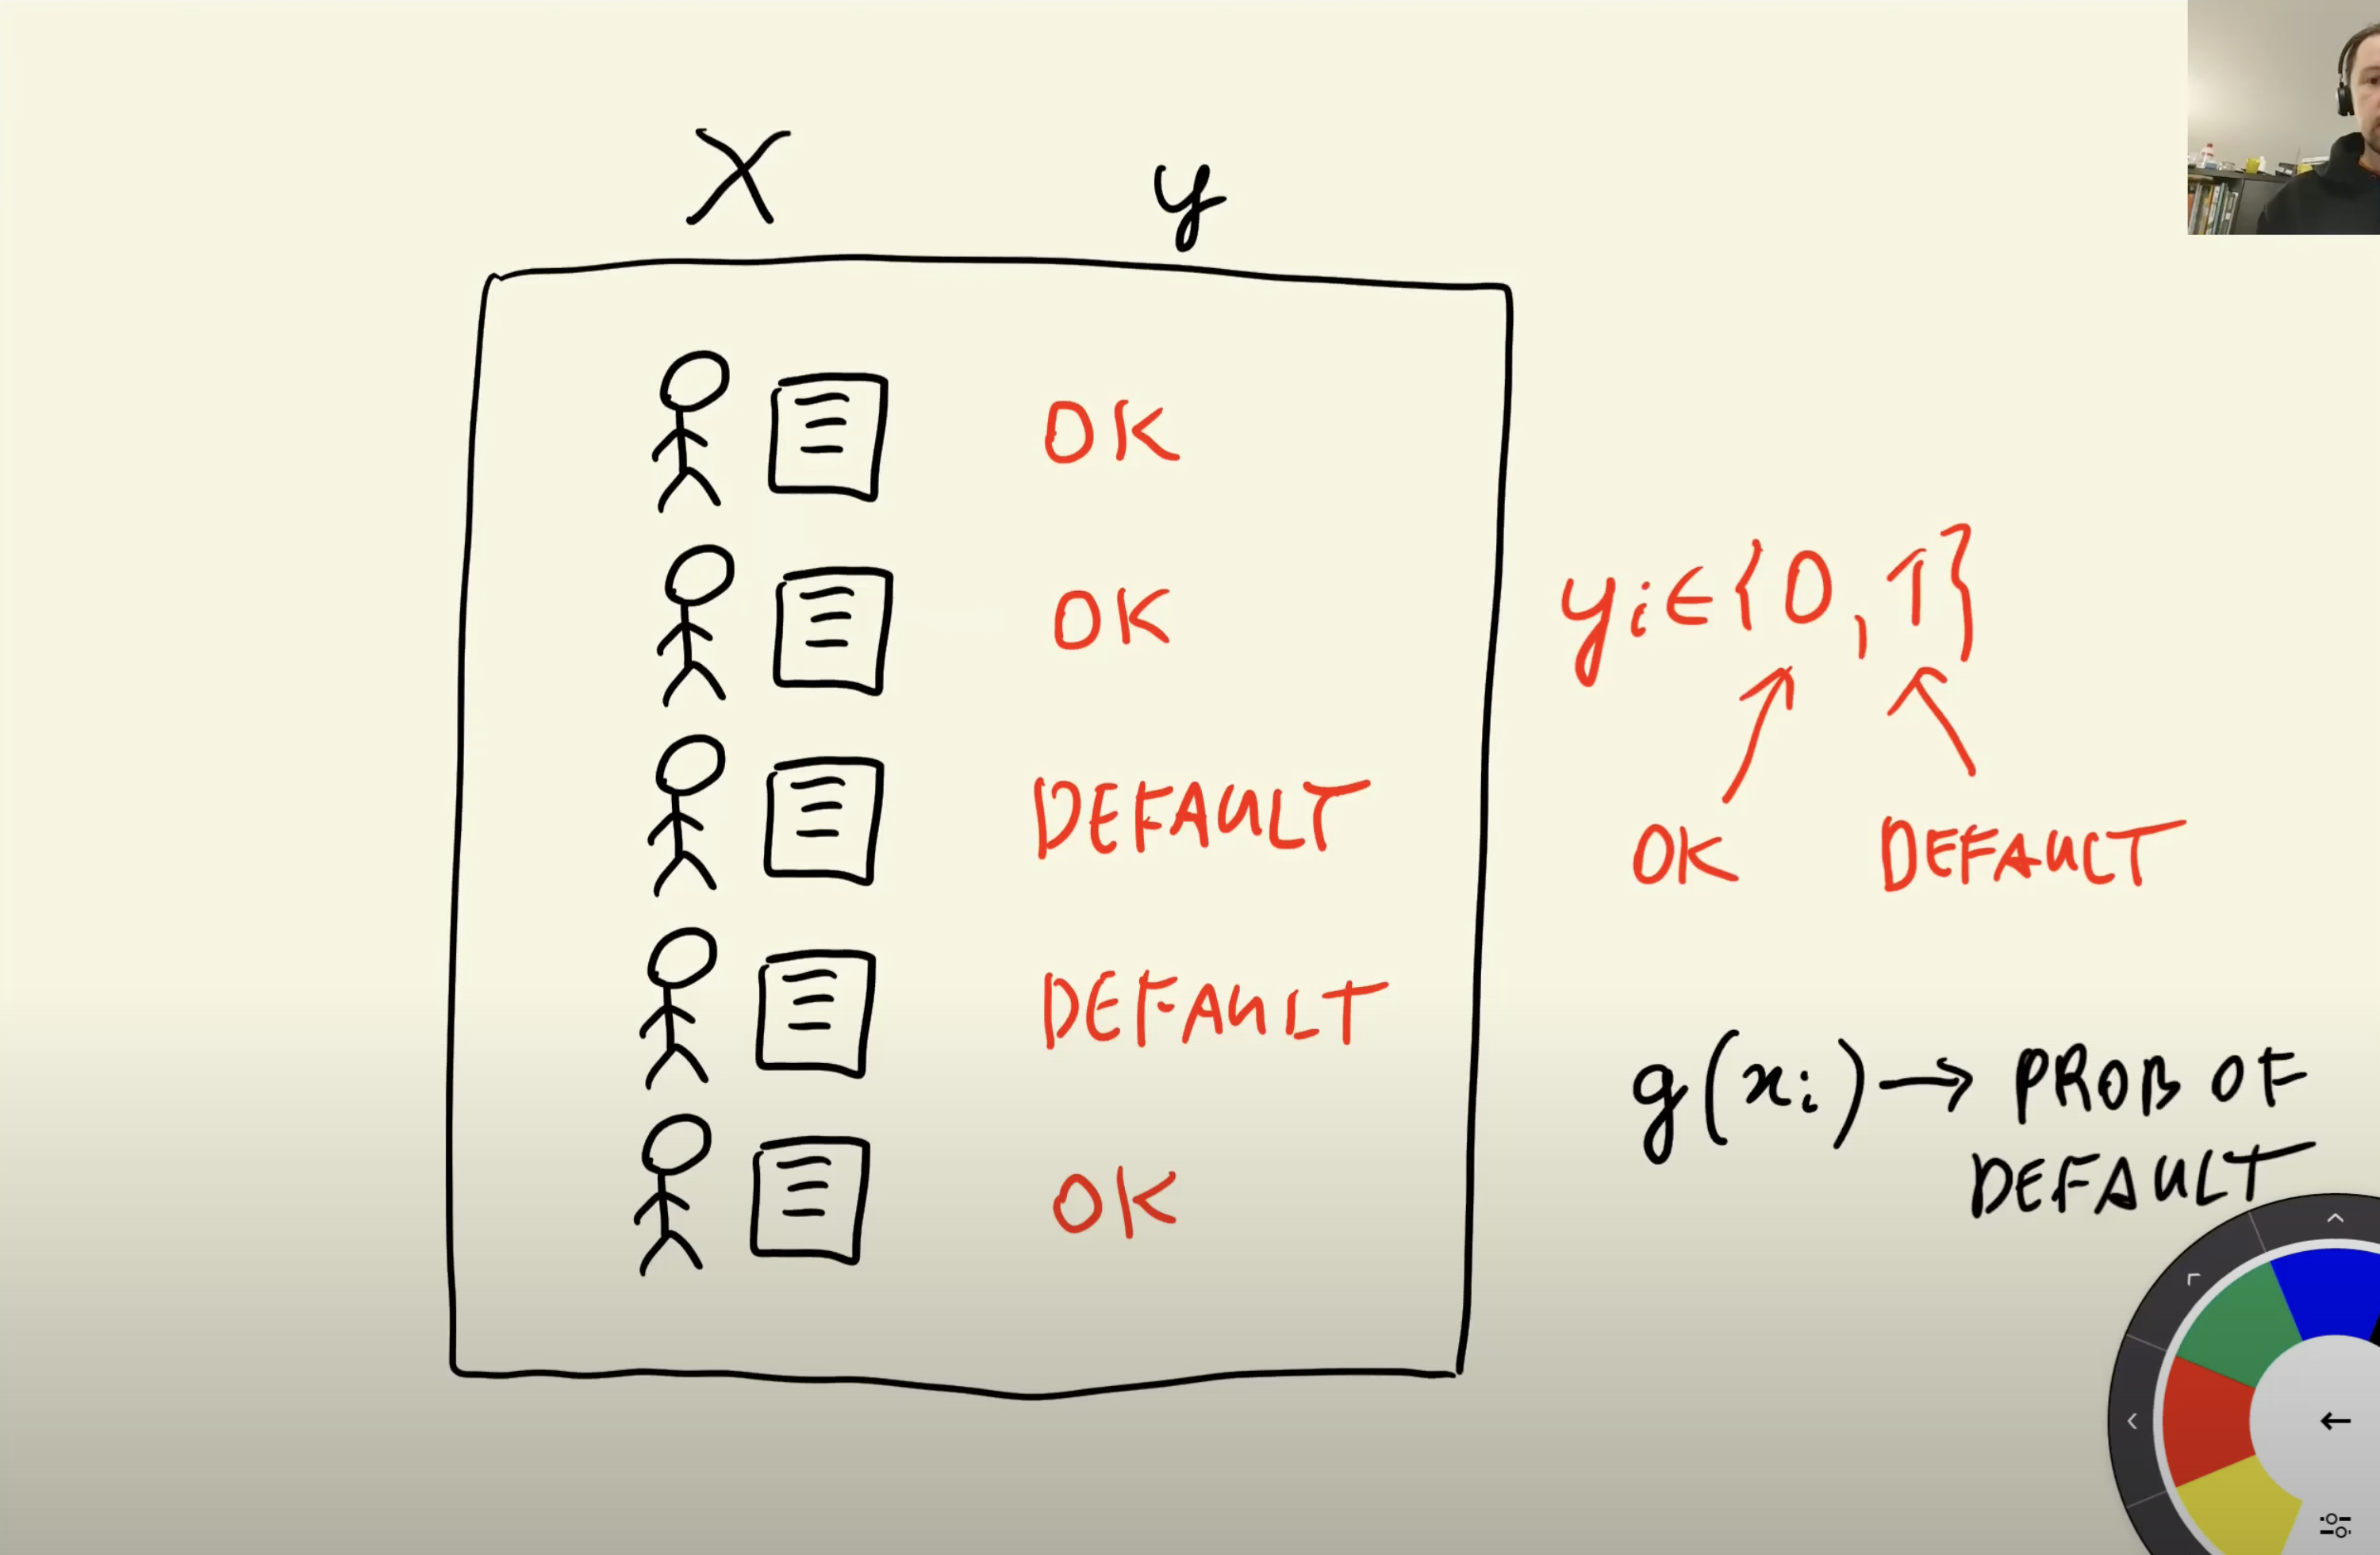 X y
OK
OK
DEFAULT
DEFAULT
OK
yi∈{0,1}
OK DEFAULT
g(xi)→PROB OF
DEFAULT